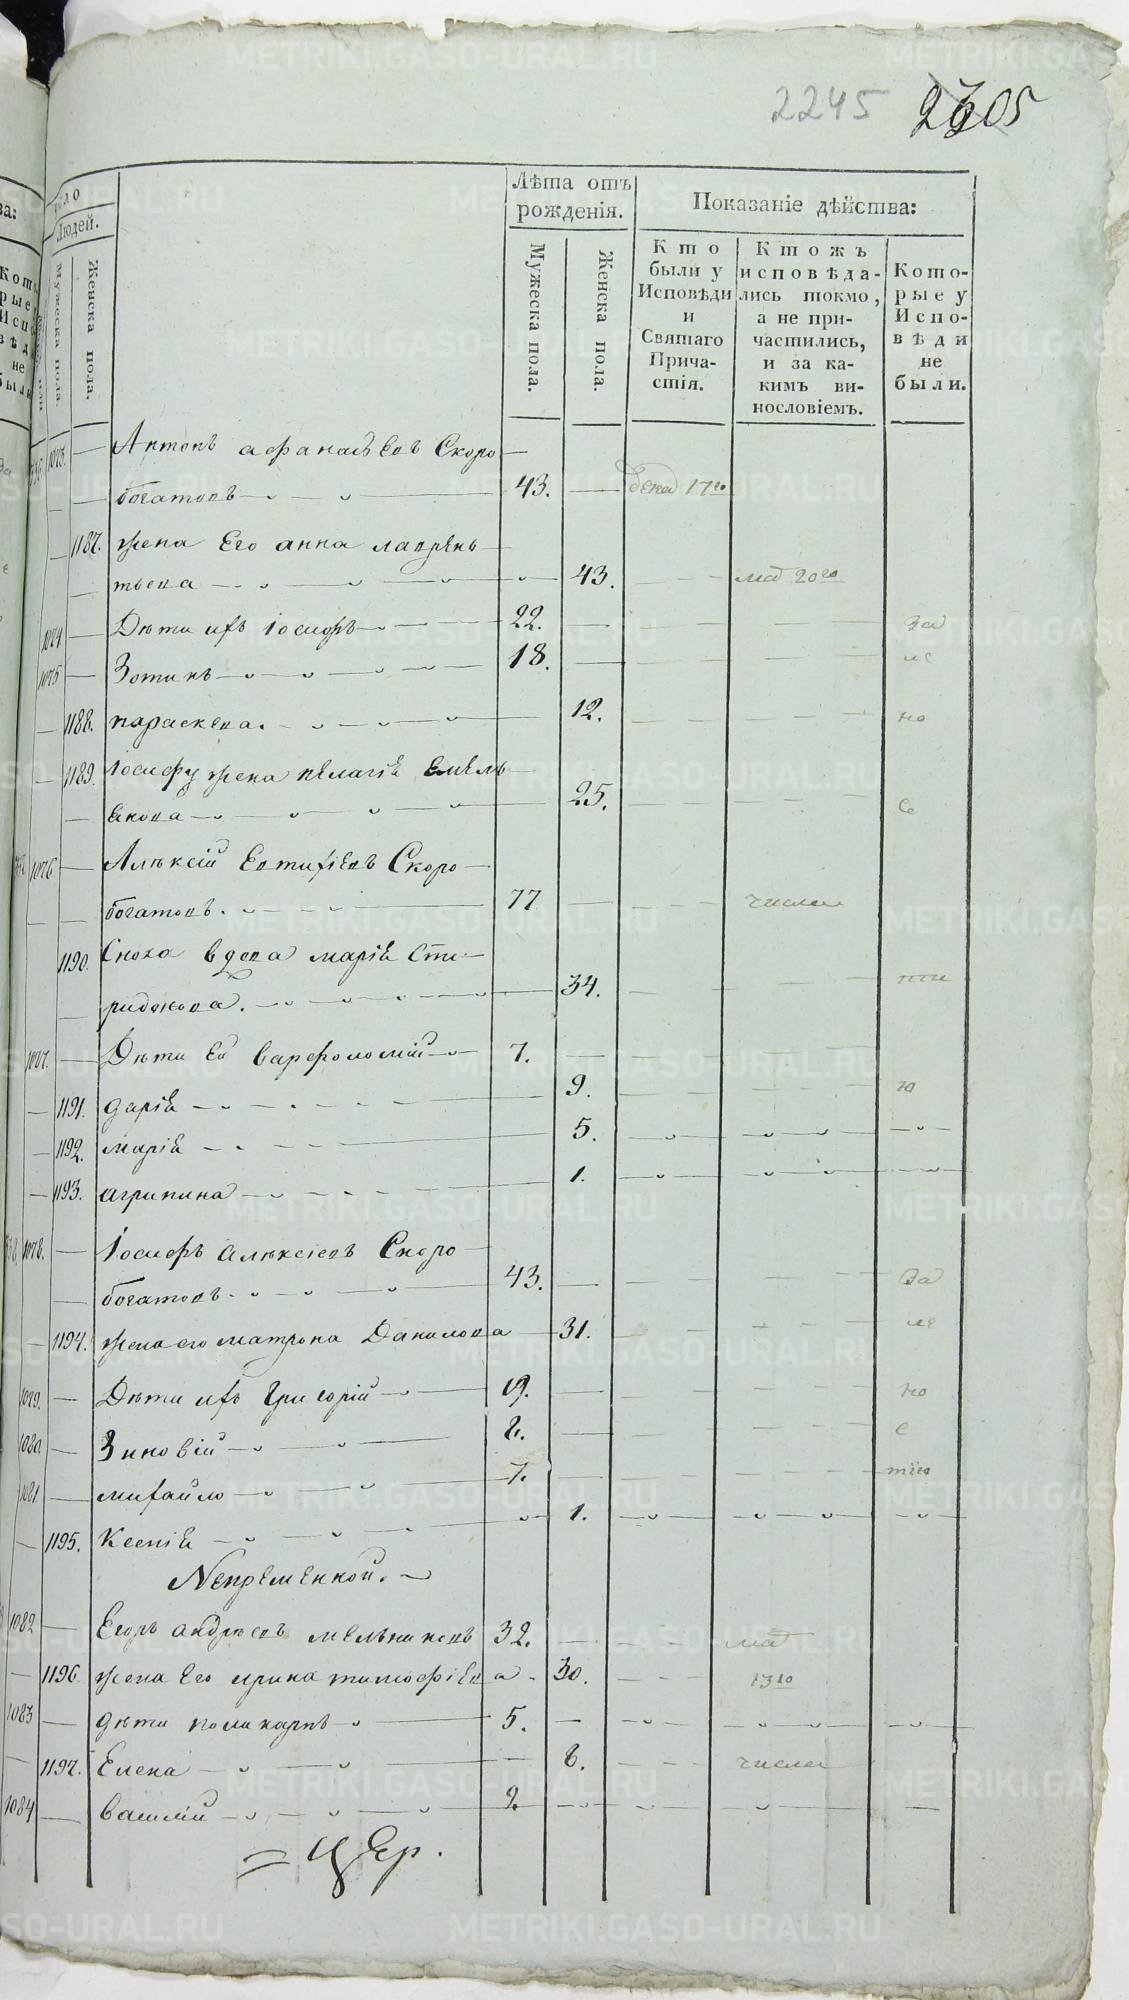 2245 2305
Число
Людей.
Мужеска пола.
Женска пола.
Лѣта отъ рожденія.
Мужеска пола.
Женска пола.
Показаніе дѣйства:
Кто были у Исповѣди и Святаго Причастія.
Ктожъ исповѣдались токмо, а не причастились, и за какимъ винословіемъ.
Которые у Исповѣди не были.
1073. Антонъ Афанасьевъ Скоро
богатовъ 43. 17го
1187. жена Его анна лаврень
тьева 43. 20го
1074 Дѣти ихъ Іосифъ 22. За
1075 Зотикъ 18. ме
1188. параскева. 12. но
1189. Іосифу жена пелагія Емель
янова 25. е
1076 Алексій Евтихіевъ Скоро
богатовъ. 77 числа
1190. Сноха вдова марія Спи
ридонова. 34.
1077. Дѣти Ея варфоломій 7.
1191. дарія 9. ю
1192. марія 5.
1193. агрипина 1.
1078. Іосифъ Алексіевъ Скоро
богатовъ 43. За
1194. жена его матрона Данилова 31. ме
1079. Дѣти ихъ Григорій 19. но
1080 Зиновій 8. е
1081 михайло 7. тію
1195. Ксенія 1.
Непременной.
1082 Егоръ андреевъ мельниковъ 32. ма
1196 жена Его ирина тимофіева 30. 13го
1083 дѣти поликарпъ 5.
1197. Елена 8. числа
1084 василій 2.
= Цер.
METRIKI.GASO-URAL.RU